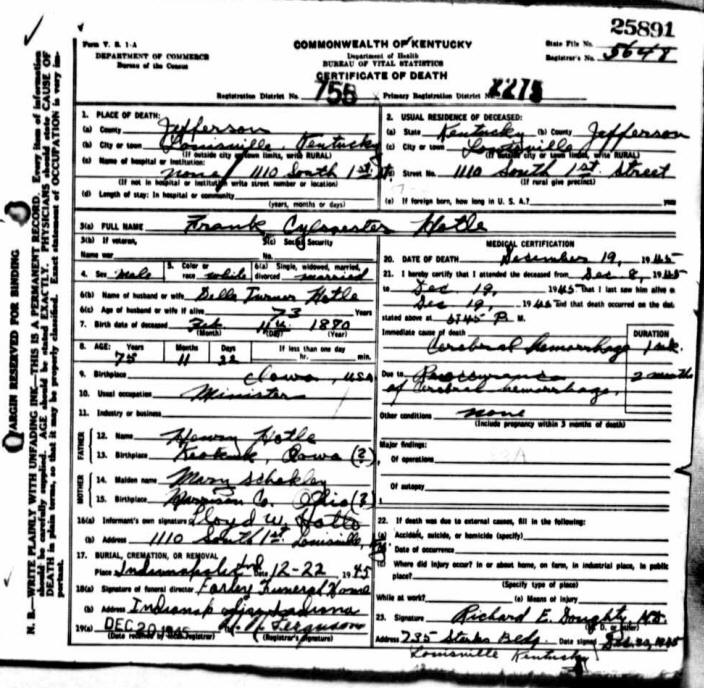 25891
Form V. S. 1-A
COMMONWEALTH OF KENTUCKY
State File No.
DEPARTMENT OF COMMERCE
Department of Health
Registrar's No. 5648
Bureau of the Census
BUREAU OF VITAL STATISTICS
CERTIFICATE OF DEATH
Registration District No. 755 Primary Registration District No. 2275
N. B.—WRITE PLAINLY WITH UNFADING INK—THIS IS A PERMANENT RECORD. Every item of information
should be carefully supplied. AGE should be stated EXACTLY. PHYSICIANS should state CAUSE OF
DEATH in plain terms, so that it may be properly classified. Exact statement of OCCUPATION is very im-
portant.
MARGIN RESERVED FOR BINDING
1. PLACE OF DEATH:
(a) County Jefferson
(b) City or town Louisville, Kentucky
(If outside city or town limits, write RURAL)
(c) Name of hospital or institution:
none / 1110 South 1st St.
(If not in hospital or institution write street number or location)
(d) Length of stay: In hospital or community
(years, months or days)
2. USUAL RESIDENCE OF DECEASED:
(a) State Kentucky (b) County Jefferson
(c) City or town Louisville
(If outside city or town limits, write RURAL)
Street No. 1110 South 1st. Street
(If rural give precinct)
(e) If foreign born, how long in U. S. A.?
3(a) FULL NAME Frank Cylvester Hotle
3(b) If veteran,
Name war
3(c) Social Security
No.
4. Sex Male
5. Color or
race white
6(a) Single, widowed, married,
divorced married
6(b) Name of husband or wife Belle Turner Hotle
6(c) Age of husband or wife if alive 73 Years
7. Birth date of deceased
(Month) (Day) (Year)
8. AGE: Years Months Days If less than one day
75 11 hr. min.
9. Birthplace Iowa, USA
10. Usual occupation Minister
11. Industry or business
FATHER
12. Name Henry Hotle
13. Birthplace Keokuk, Iowa (?)
MOTHER
14. Maiden name Mary
15. Birthplace Harrison Co. Ohio (?)
16(a) Informant's own signature Lloyd W. Hotle
(b) Address 1110 South 1st. Louisville, Ky.
17. BURIAL, CREMATION, OR REMOVAL
Place Indianapolis Ind Date 12-22 1945
18(a) Signature of funeral director Farley Funeral Home
(b) Address Indianapolis Indiana
19(a) DEC 20 1945 Ferguson
(Date received by local registrar) (Registrar's signature)
MEDICAL CERTIFICATION
20. DATE OF DEATH December 19, 1945
21. I hereby certify that I attended the deceased from Dec 8, 1945
to Dec 19, 1945 That I last saw him alive o
Dec 19, 1945 and that death occurred on the dat
stated above at P. M.
Immediate cause of death
DURATION
Cerebral Hemorrhage 1 wk.
Due to
2 months
of Cerebral hemorrhage.
Other conditions none
(Include pregnancy within 3 months of death)
Major findings:
Of operations
Of autopsy
22. If death was due to external causes, fill in the following:
(a) Accident, suicide, or homicide (specify)
Date of occurrence
(c) Where did injury occur? In or about home, on farm, in industrial place, in public
place?
(Specify type of place)
While at work? (e) Means of injury
23. Signature Richard E. MD
Address 735 Starks Bldg. Date signed Dec. 20, 1945
Louisville Kentucky